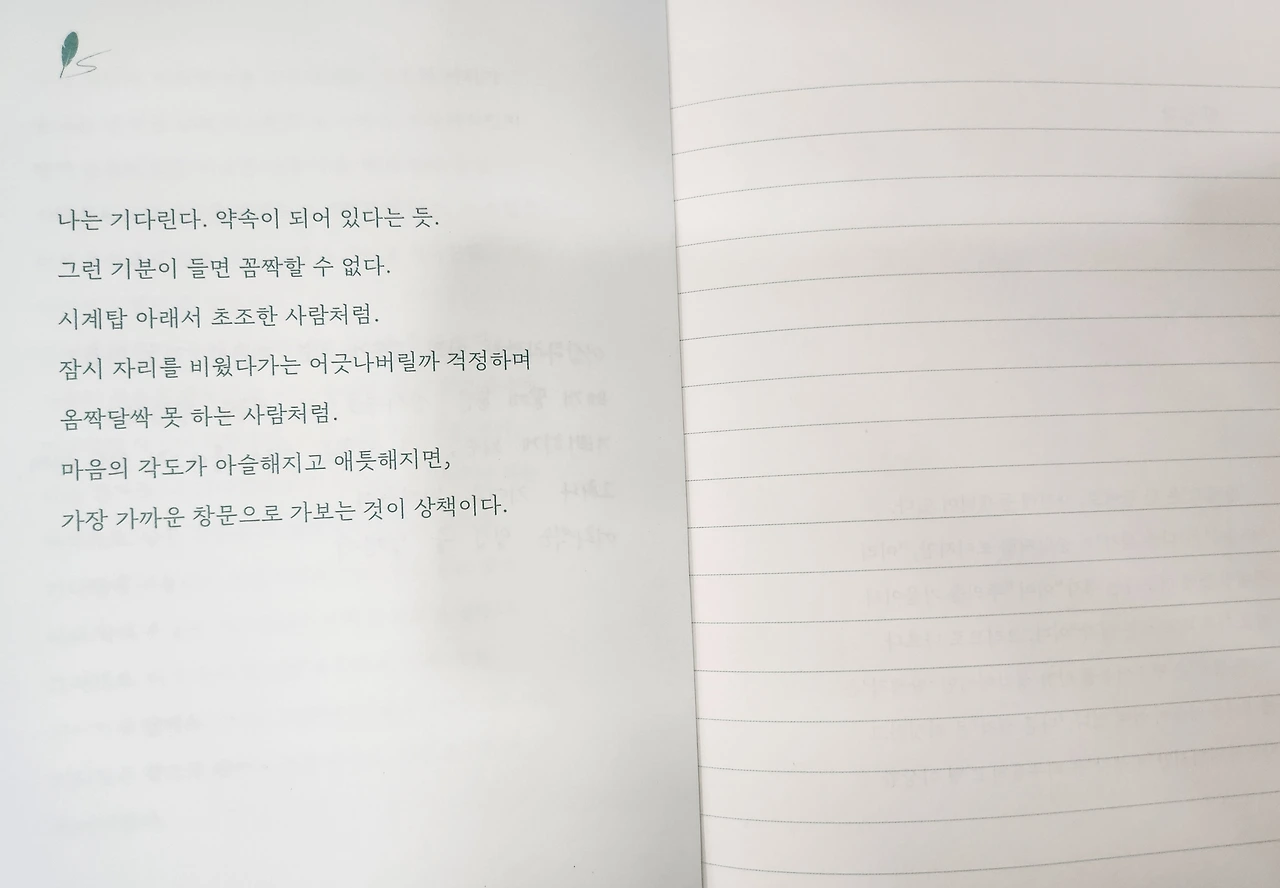 나는 기다린다. 약속이 되어 있다는 듯.
그런 기분이 들면 꼼짝할 수 없다.
시계탑 아래서 초조한 사람처럼.
잠시 자리를 비웠다가는 어긋나버릴까 걱정하며
옴짝달싹 못 하는 사람처럼.
마음의 각도가 아슬해지고 애틋해지면,
가장 가까운 창문으로 가보는 것이 상책이다.